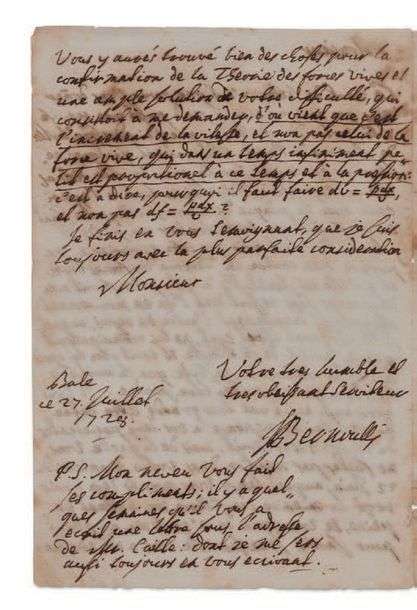 Vous y aurés trouvé bien des choses pour la
confirmation de la Theorie des forces vives et
une ample solution de votre difficulté, qui
consistoit à me demander, d'où vient que c'est
l'increment de la vitesse, et non pas celui de la
force vive, qui dans un temps infiniment pe-
tit est proportionel à ce temps et à la pression:
c'est à dire, pourquoi il faut faire dv = pdx,
et non pas df = pdx?
Je finis en vous temoignant, que je suis
toujours avec la plus parfaite consideration
Monsieur
Votre tres humble et
tres obeissant serviteur
Bale
ce 27. Juillet
1728.
JBernoulli
P.S. Mon neveu vous fait
ses compliments; il y a quel-
ques semaines qu'il vous a
ecrit une lettre sous l'adresse
de Mr. Caille: dont je me sers
aussi toujours en vous ecrivant.